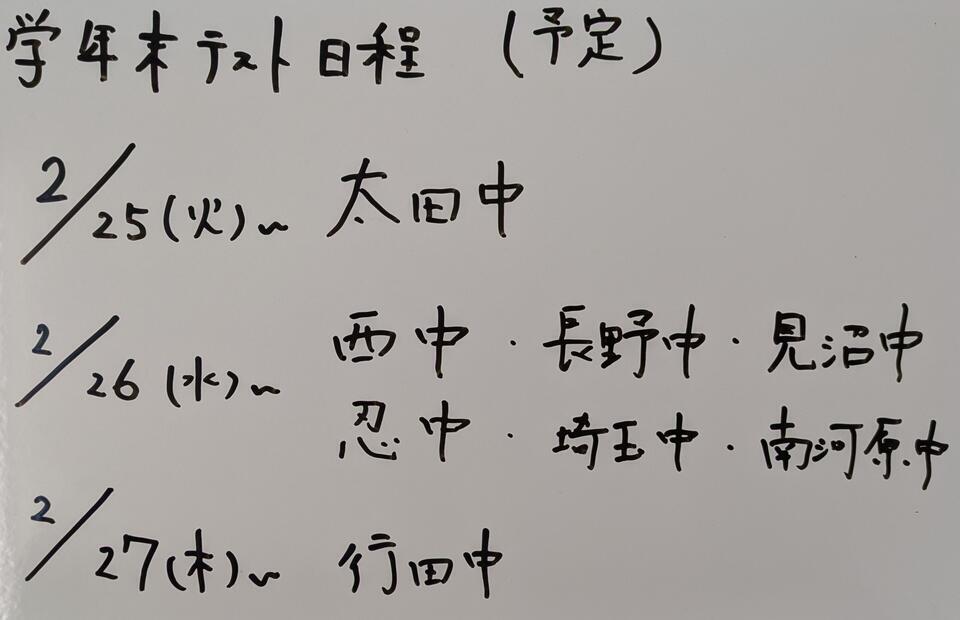 学年末テスト日程 (予定)
2/25(火)~ 太田中
2/26(水)~ 西中・長野中・見沼中
忍中・埼玉中・南河原中
2/27(木)~ 行田中